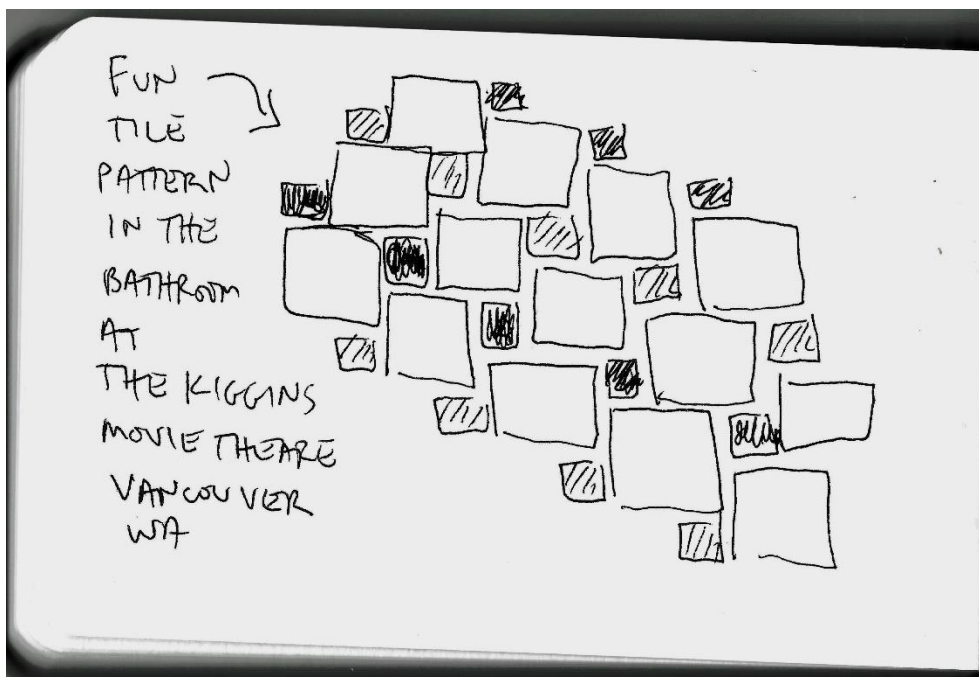 FUN
TILE
PATTERN
IN THE
BATHROOM
AT
THE KIGGINS
MOVIE THEARE
VANCOUVER
WA